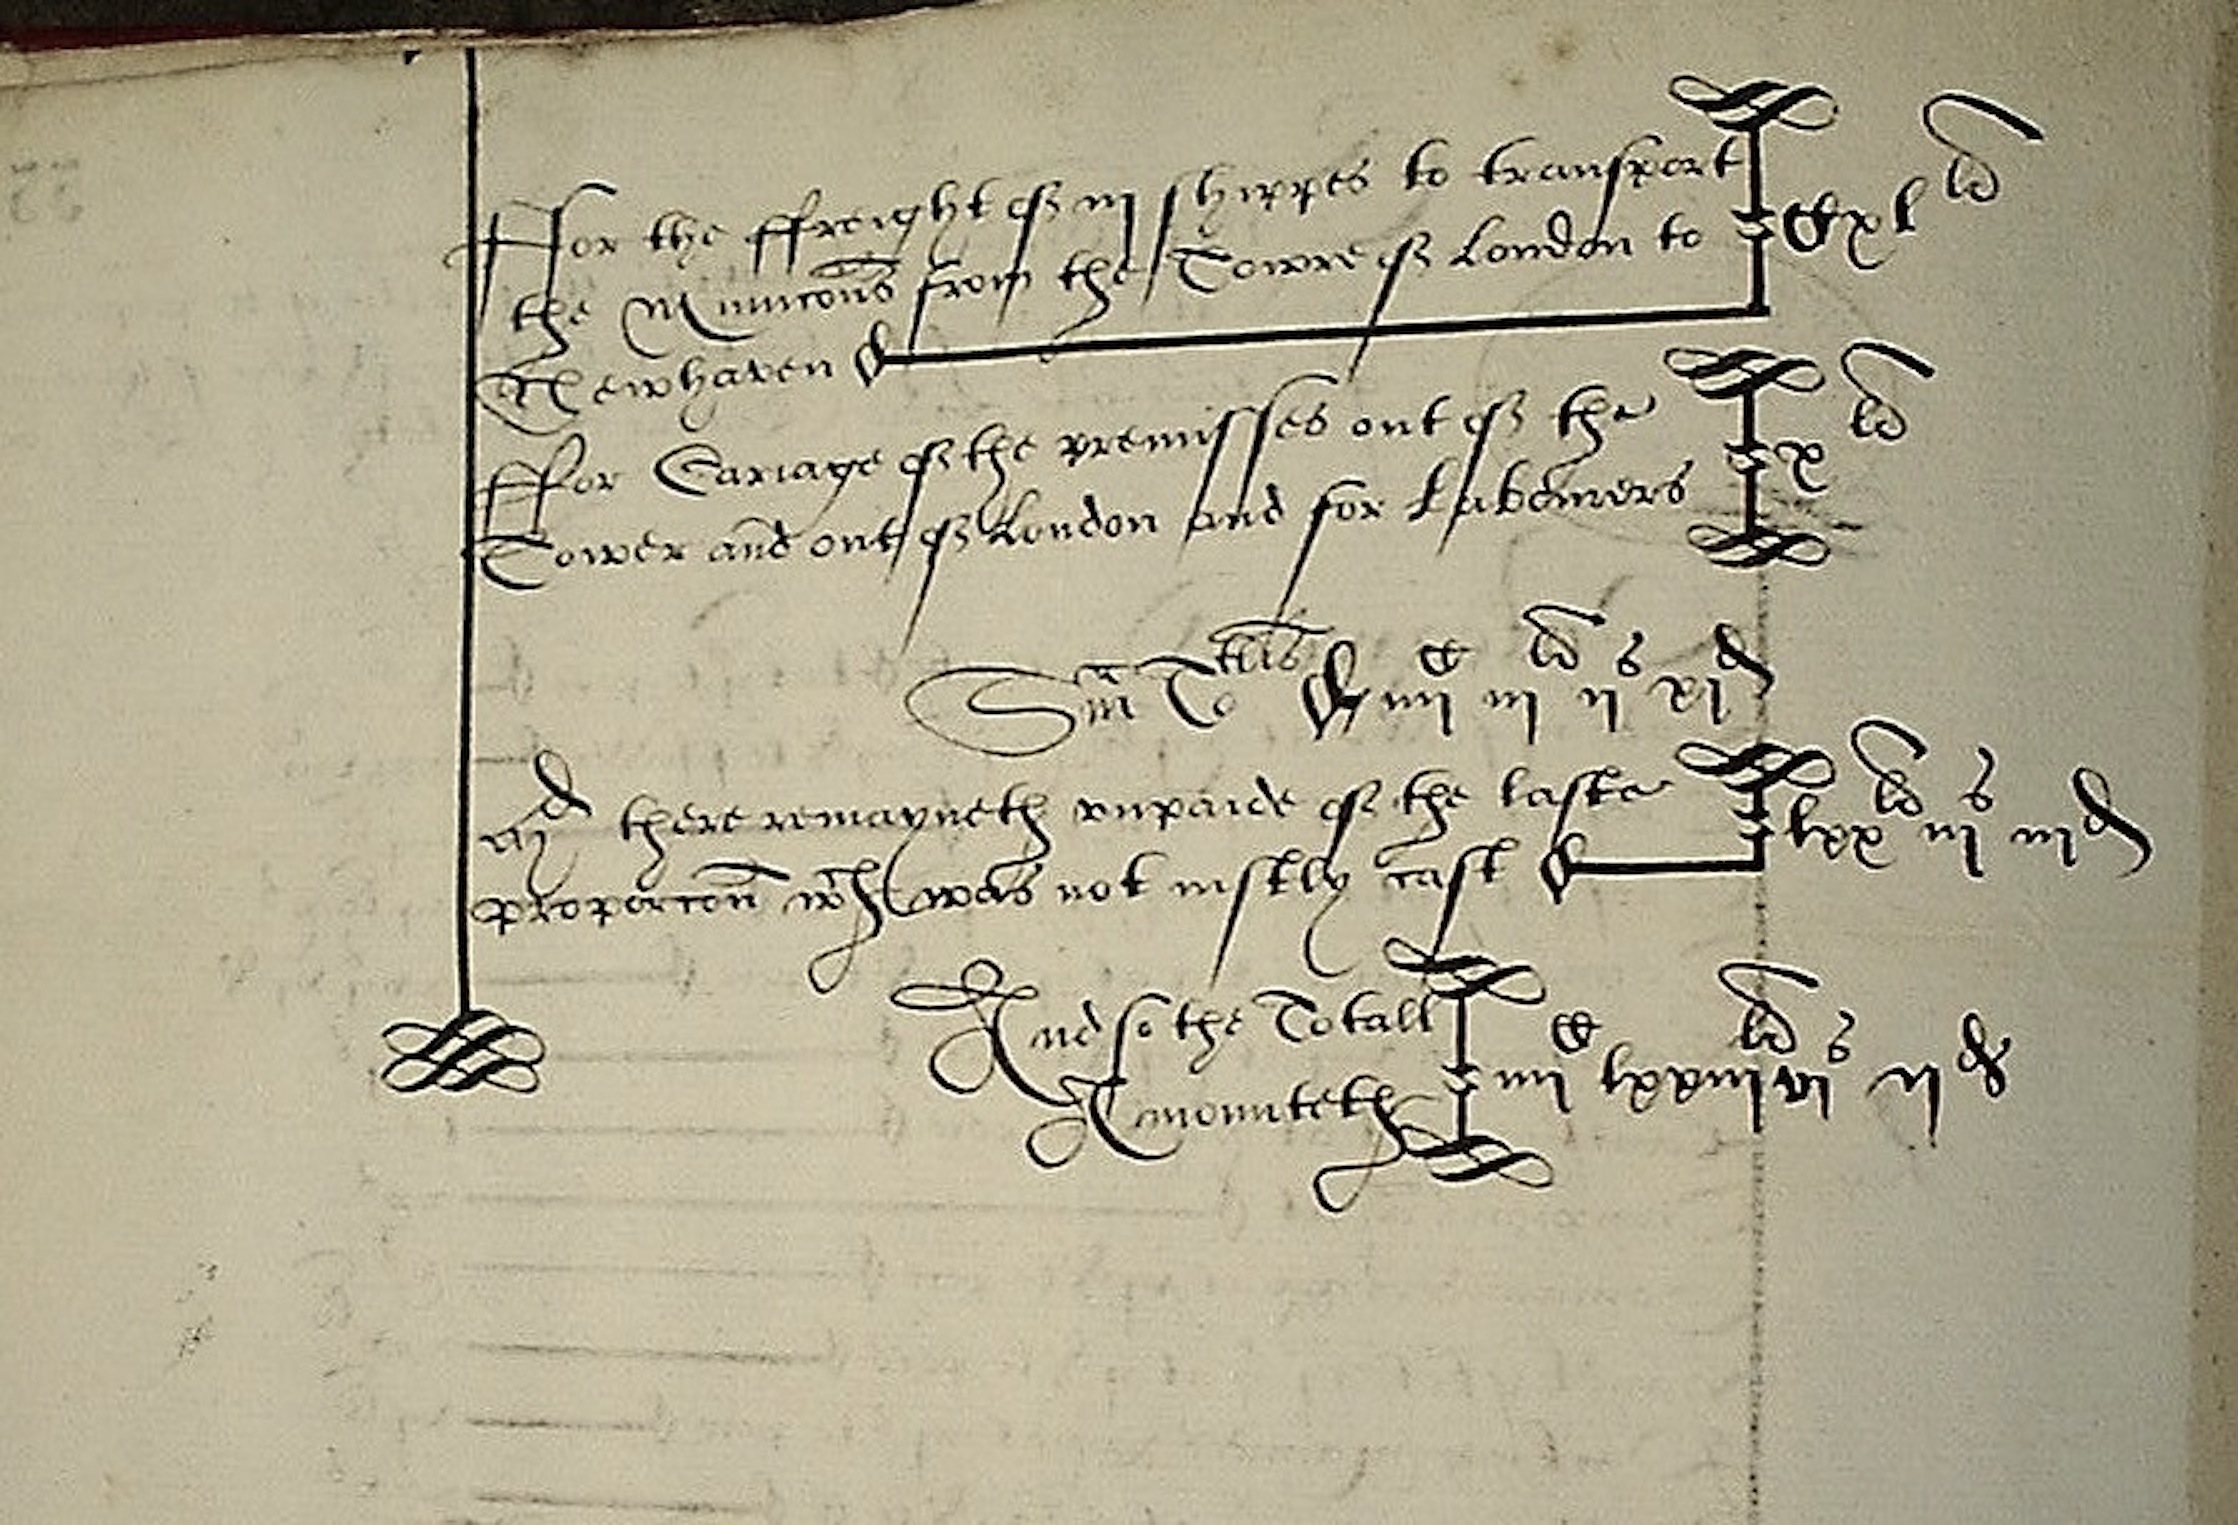 Ffor the ffreight of iij shippes to transport
the Municons from the Towre of London to Cxl li
Newhaven
Ffor Cariage of the premisses out of the
Tower and out of London and for Labourers x li
Sm Totlis iiij C iij li ij s xj d
there remayneth vnpaide of the laste
proporcon wch was not iustly cast lxx li iij s iij d
And so the Totall
Amounteth iiij C lxxiij li vj s ij d